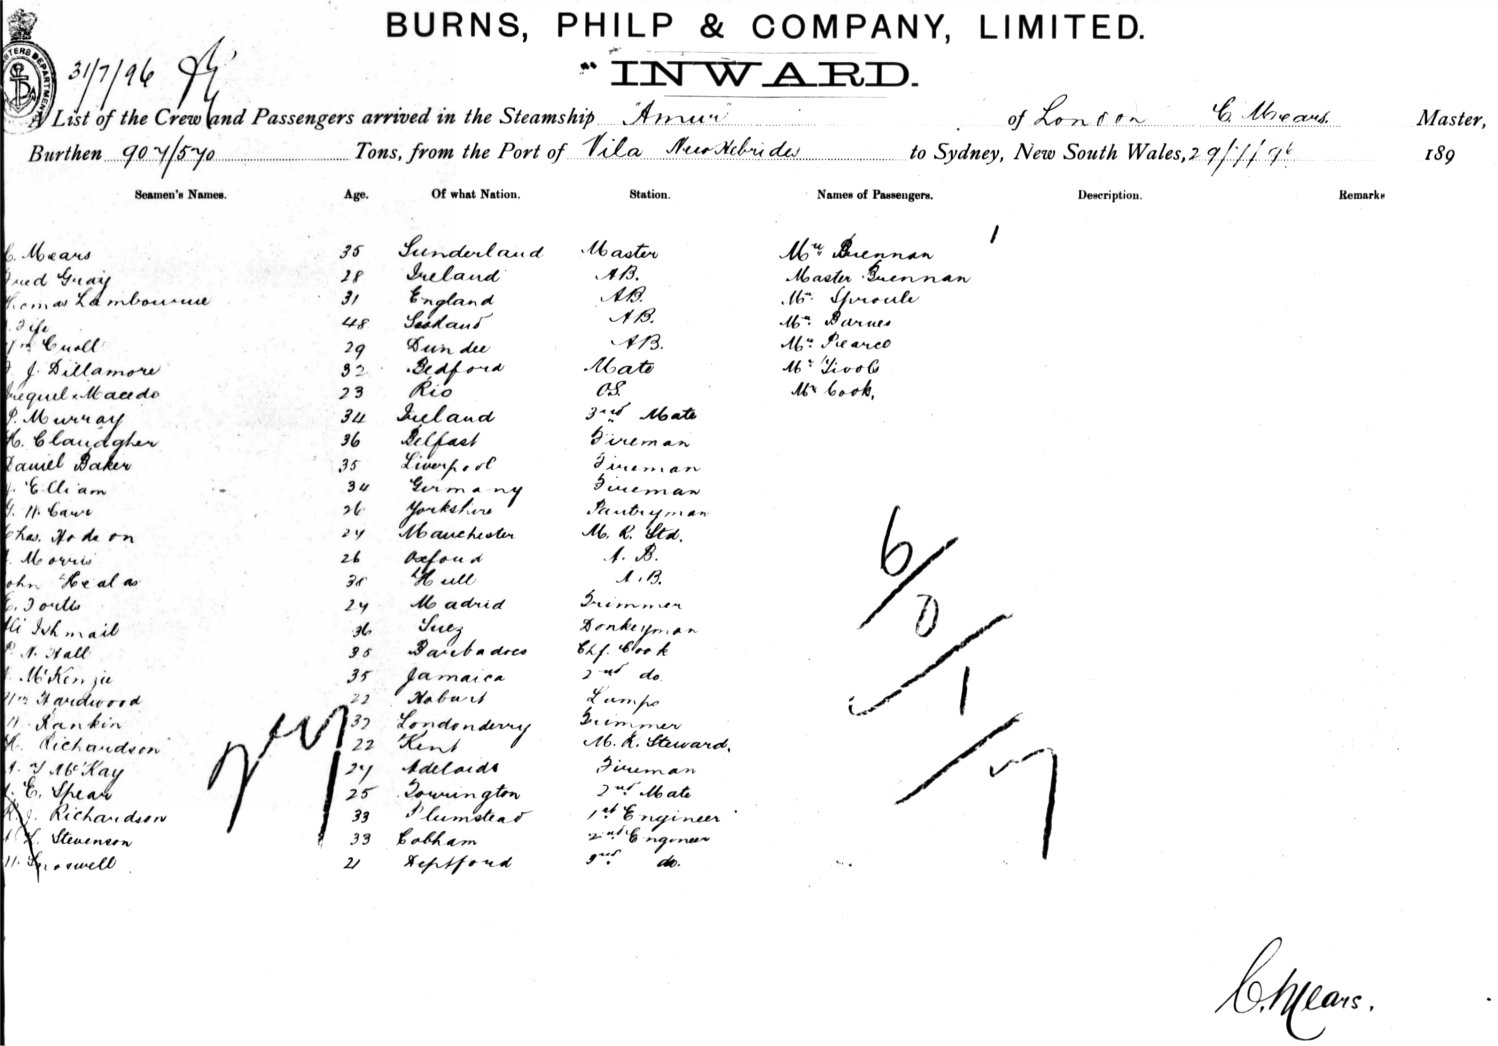 BURNS, PHILP & COMPANY, LIMITED.
INWARD.
31/7/96
A List of the Crew and Passengers arrived in the Steamship "Amur" of London C. Mears Master,
Burthen 907/570 Tons, from the Port of Vila New Hebrides to Sydney, New South Wales, 29/7/96 189
Seamen's Names. Age. Of what Nation. Station. Names of Passengers. Description. Remarks
C. Mears 35 Sunderland Master Mrs Brennan 1
Fred Gray 28 Ireland AB. Master Brennan
Thomas Lambourne 31 England AB. Mr. Sproule
Fife 48 Scotland AB. Mr. Barnes
Wm Cuoll 29 Dundee AB. Mr. Pearce
J. Dillamore 32 Bedford Mate Mr
Macedo 23 Rio O.S. Mr Cook.
P. Murray 34 Ireland 3rd Mate
H. Claudgher 36 Belfast Fireman
Daniel Baker 35 Liverpool Fireman
Elliam 34 Germany Fireman
G. H. Carr 26 Yorkshire Pantryman
Chas. Hodson 24 Manchester M. R. Std.
Morris 26 Oxford A. B.
John Healas 38 Hull A.B.
24 Madrid Trimmer
Ali Ishmail 36 Suez Donkeyman
P. N. Hall 35 Barbadoes Chf. Cook
McKenzie 35 Jamaica 2nd do.
Wm Hardwood 22 Hobart Lamps
H. Rankin 32 Londonderry Trimmer
H. Richardson 22 Kent M. R. Steward.
McKay 24 Adelaide Fireman
E. Spear 25 Torrington 2nd Mate
R. J. Richardson 33 Plumstead 1st Engineer
L. Stevenson 33 Cobham 2nd Engineer
H. 21 Deptford 3rd do.
6/0/1/7
C. Mears.